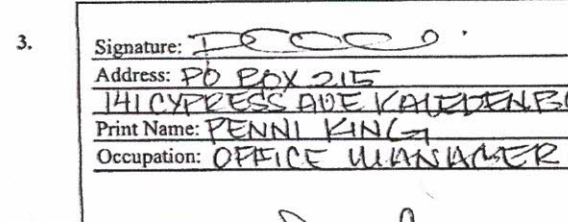 3.
Signature:
Address: PO BOX 215
141 CYPRESS AVE KALEDEN, BC
Print Name: PENNI KING
Occupation: OFFICE MANAGER